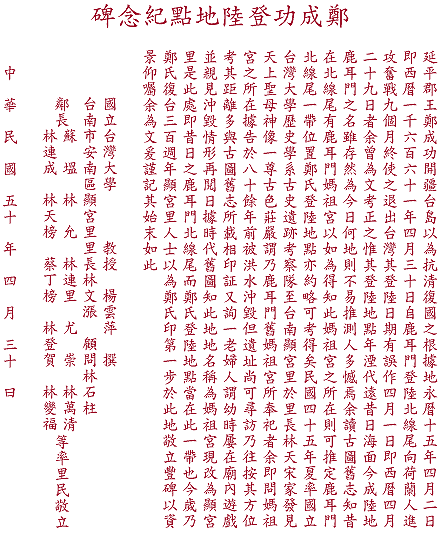 鄭成功登陸地點紀念碑
延平郡王鄭成功開疆台島以為抗清復國之根據地永曆十五年四月二日
即西曆一千六百六十一年四月三十日自鹿耳門登陸北線尾向荷蘭人進
攻奮戰九個月終使之退出台灣其登陸日期有誤作四月一日即西曆四月
二十九日者余曾為文考正之惟其登陸地點年湮代遠昔日海面今成陸地
鹿耳門之名雖存然為今日何地則不易推測人多憾焉余讀古圖舊志知昔
在北線尾有鹿耳門媽祖宮以為如得此媽祖宮之所在則可推定鹿耳門
北線尾一帶位置鄭氏登陸地點亦約略可考得矣民國四十五年夏率國立
台灣大學歷史學系古史遺跡考察隊至台南顯宮里於里長林天宋家發見
天上聖母神像一尊古色莊嚴謂乃鹿耳門舊媽祖宮所奉祀者余即問媽祖
宮之所在據告於八十餘年前被洪水沖毀但遺址尚可尋訪乃往按其方位
考其距離多與古圖舊志所載相印証又詢一老婦人謂幼時屢在廟內遊戲
並親見沖毀情形再閱日據時代舊圖知此地地名稱為媽祖宮現改為顯宮
里是此處即昔日之鹿耳門北線尾而鄭氏登陸地點當在此一帶也今歲乃
鄭氏復台三百週年顯宮里人士以為鄭氏印第一步於此地敬立豐碑以資
景仰囑余為文爰謹記其始末如此
國立台灣大學 教授 楊雲萍 撰
台南市安南區顯宮里里長林文漲 顧問林石柱
鄰長 蘇塭 林允 林連里 尤崇 林萬清 等率里民敬立
林連成 林天榜 蔡丁榜 林登賀 林變福
中華民國五十年四月三十日